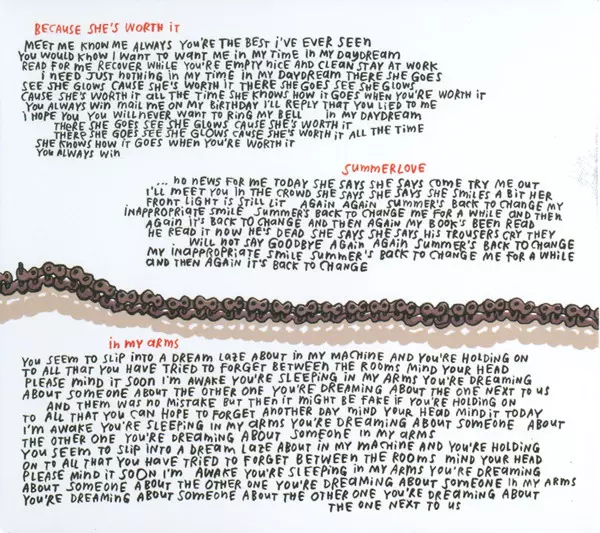 BECAUSE SHE'S WORTH IT
MEET ME KNOW ME ALWAYS YOU'RE THE BEST I'VE EVER SEEN
YOU WOULD KNOW I WANT TO WANT ME IN MY TIME IN MY DAYDREAM
READ FOR ME RECOVER WHILE YOU'RE EMPTY NICE AND CLEAN STAY AT WORK
I NEED JUST NOTHING IN MY TIME IN MY DAYDREAM THERE SHE GOES
SEE SHE GLOWS CAUSE SHE'S WORTH IT THERE SHE GOES SEE SHE GLOWS
CAUSE SHE'S WORTH IT ALL THE TIME SHE KNOWS HOW IT GOES WHEN YOU'RE WORTH IT
YOU ALWAYS WIN MAIL ME ON MY BIRTHDAY I'LL REPLY THAT YOU LIED TO ME
I HOPE YOU YOU WILL NEVER WANT TO RING MY BELL IN MY DAYDREAM
THERE SHE GOES SEE SHE GLOWS CAUSE SHE'S WORTH IT
THERE SHE GOES SEE SHE GLOWS CAUSE SHE'S WORTH IT ALL THE TIME
SHE KNOWS HOW IT GOES WHEN YOU'RE WORTH IT
YOU ALWAYS WIN
SUMMERLOVE
... NO NEWS FOR ME TODAY SHE SAYS SHE SAYS COME TRY ME OUT
I'LL MEET YOU IN THE CROWD SHE SAYS SHE SAYS SHE SMILES A BIT HER
FRONT LIGHT IS STILL LIT AGAIN AGAIN SUMMER'S BACK TO CHANGE MY
INAPPROPRIATE SMILE SUMMER'S BACK TO CHANGE ME FOR A WHILE AND THEN
AGAIN IT'S BACK TO CHANGE AND THEN AGAIN MY BOOK'S BEEN READ
HE READ IT NOW HE'S DEAD SHE SAYS SHE SAYS HIS TROUSERS CRY THEY
WILL NOT SAY GOODBYE AGAIN AGAIN SUMMER'S BACK TO CHANGE
MY INAPPROPRIATE SMILE SUMMER'S BACK TO CHANGE ME FOR A WHILE
AND THEN AGAIN IT'S BACK TO CHANGE
IN MY ARMS
YOU SEEM TO SLIP INTO A DREAM LAZE ABOUT IN MY MACHINE AND YOU'RE HOLDING ON
TO ALL THAT YOU HAVE TRIED TO FORGET BETWEEN THE ROOMS MIND YOUR HEAD
PLEASE MIND IT SOON I'M AWAKE YOU'RE SLEEPING IN MY ARMS YOU'RE DREAMING
ABOUT SOMEONE ABOUT THE OTHER ONE YOU'RE DREAMING ABOUT THE ONE NEXT TO US
AND THERE WAS NO MISTAKE BUT THEN IT MIGHT BE FAKE IF YOU'RE HOLDING ON
TO ALL THAT YOU CAN HOPE TO FORGET ANOTHER DAY MIND YOUR HEAD MIND IT TODAY
I'M AWAKE YOU'RE SLEEPING IN MY ARMS YOU'RE DREAMING ABOUT SOMEONE ABOUT
THE OTHER ONE YOU'RE DREAMING ABOUT SOMEONE IN MY ARMS
YOU SEEM TO SLIP INTO A DREAM LAZE ABOUT IN MY MACHINE AND YOU'RE HOLDING
ON TO ALL THAT YOU HAVE TRIED TO FORGET BETWEEN THE ROOMS MIND YOUR HEAD
PLEASE MIND IT SOON I'M AWAKE YOU'RE SLEEPING IN MY ARMS YOU'RE DREAMING
ABOUT SOMEONE ABOUT THE OTHER ONE YOU'RE DREAMING ABOUT SOMEONE IN MY ARMS
YOU'RE DREAMING ABOUT SOMEONE ABOUT THE OTHER ONE YOU'RE DREAMING ABOUT
THE ONE NEXT TO US